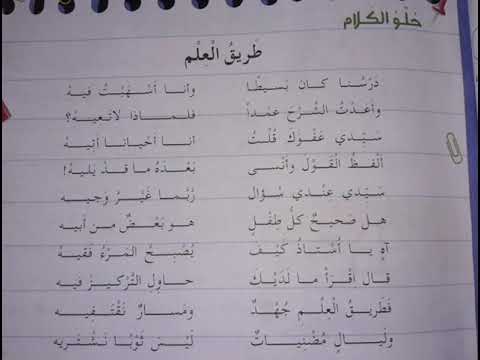 حُلْوُ الكلام
طَريقُ الْعِلْم
دَرْسُنا كان بَسيطًا وأنا أَسْهَبْتُ فيهْ
وأعَدْتُ الشَّرْحَ عَمْداً فلمـاذا لاتَعيهْ؟
سَيّدي عَفْوَكَ قُلْتُ أنـا أَحْيانـا أتيهْ
أَلْفِظُ الْقَوْلَ وأَنْسى بَعْدَهُ ما قدْ يَليهْ!
سَيّدي عِنْدي سُؤال رُبَّمـا غَيْـرُ وَجيـه
هل صَحيحٌ كلُّ طِفْلٍ هو بَعْضٌ من أبيه
آهٍ يـا أُسْتاذُ كَيْـفَ يُصْبِـحُ المَرْءُ فَقيهْ
قال اِقْرَأْ ما لَدَيْكَ حـاوِلِ التَّرْكيـزَ فيه
فَطَريقُ الْعِلْمِ جُهْدٌ ومَسـارٌ نَقْتَـفـيه
ولَيالٍ مُضْنِياتٌ لَيْسَ ثَوْبًا نَشْتَريه